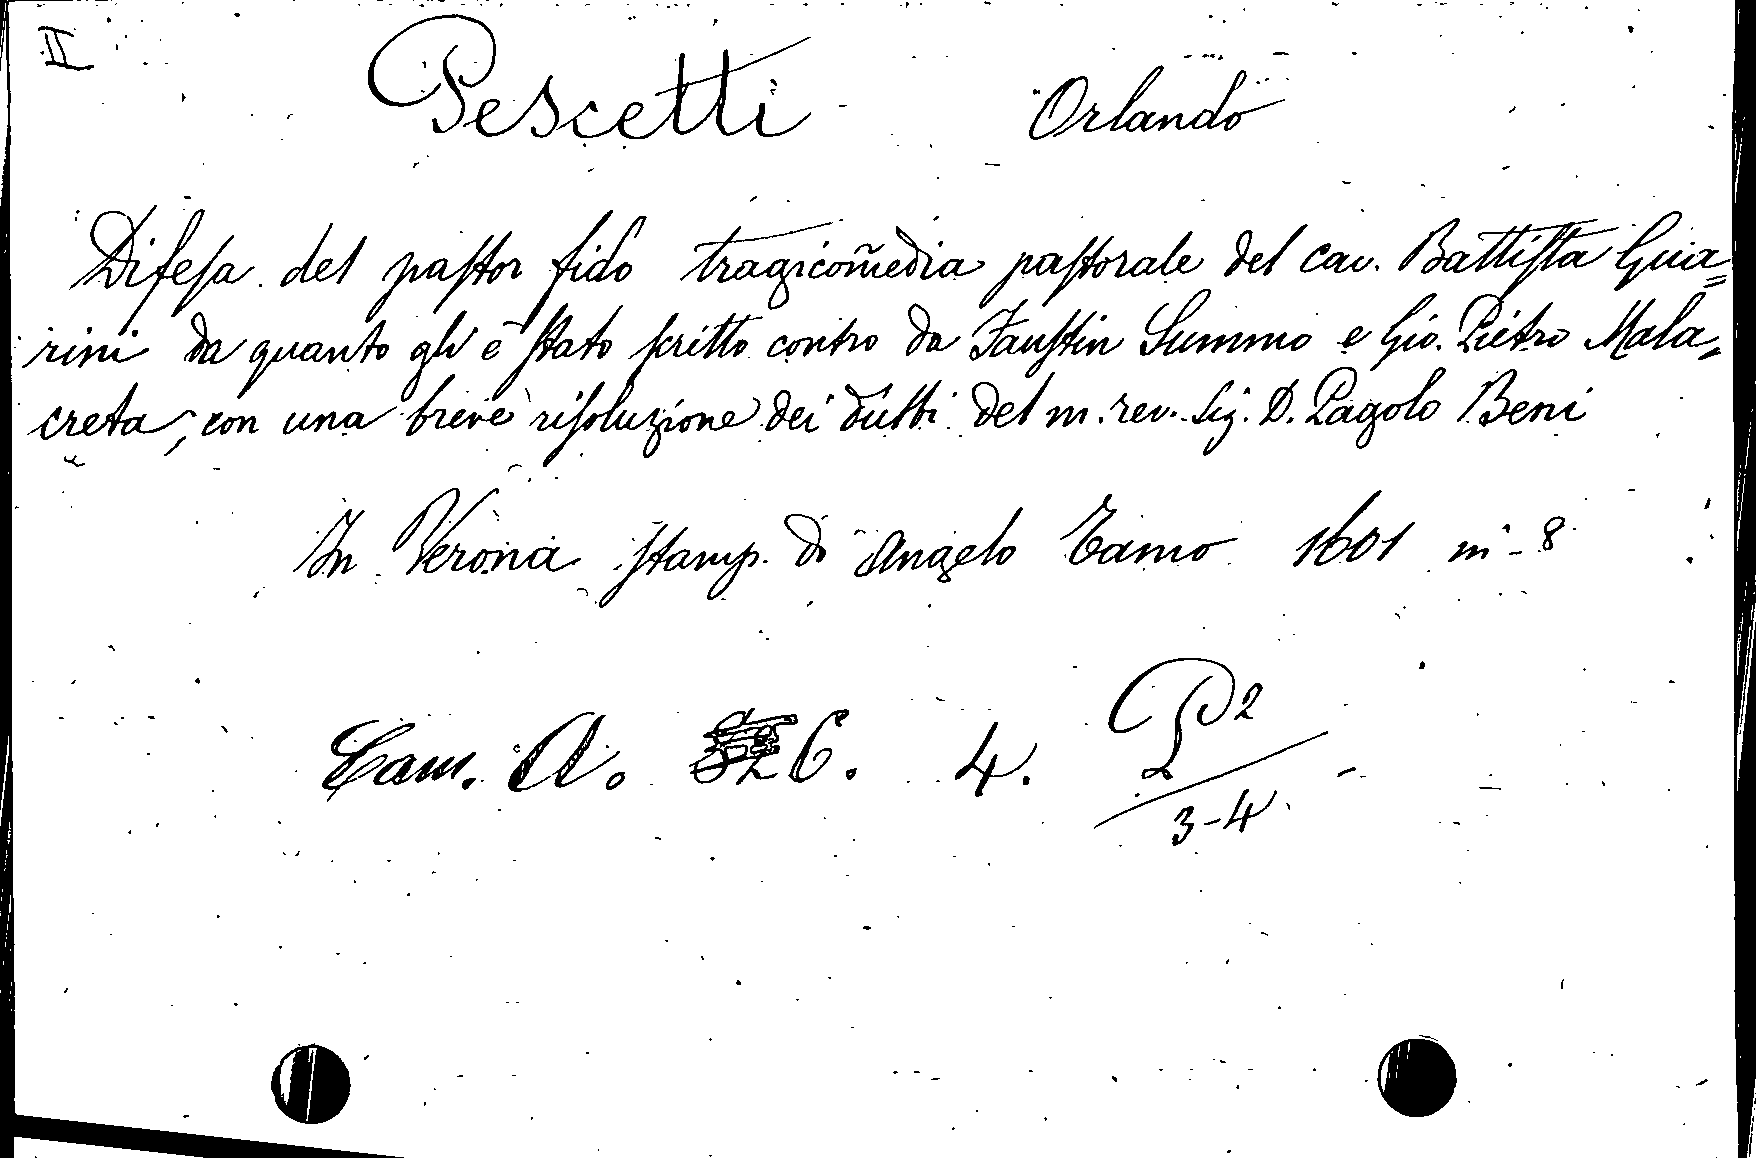 II
Pescetti Orlando
Difeſa del paſtor fido tragicom̃edia paſtorale del cav. Battiſta Gua=
rini da quanto gli è ſtato ſcritto contro da Fauſtin Summo e Gio. Pietro Mala=
creta, con una breve riſoluzione dei dubbi del m. rev. Sig. D. Pagolo Beni
In Verona ſtamp. di Angelo Tamo 1601 in-8
Cam. A. 6. 4. P2
3-4